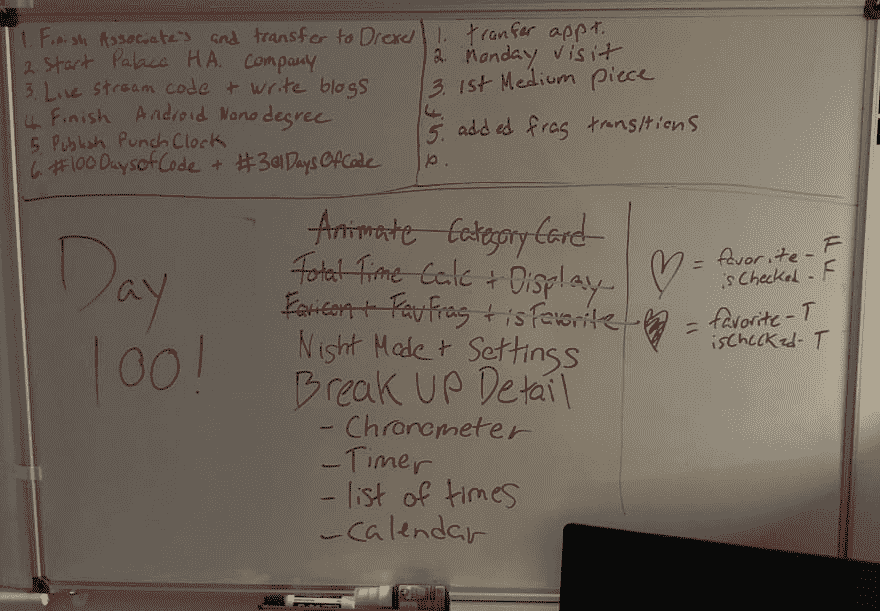 1. Finish Associate's and transfer to Drexel
2. Start Palace H.A. company
3. Live stream code + write blogs
4. Finish Android Nanodegree
5. Publish PunchClock
6. #100DaysofCode + #301DaysOfCode
1. tranfer appt.
2. Monday visit
3. 1st Medium piece
4.
5. added frag transitions
6.
Day
100!
Animate Category Card
Total Time Calc + Display
Favicon + FavFrag + isFavorite
Night Mode + Settings
Break Up Detail
- Chronometer
- Timer
- list of times
- Calendar
= favorite - F
isChecked - F
= favorite - T
isChecked - T